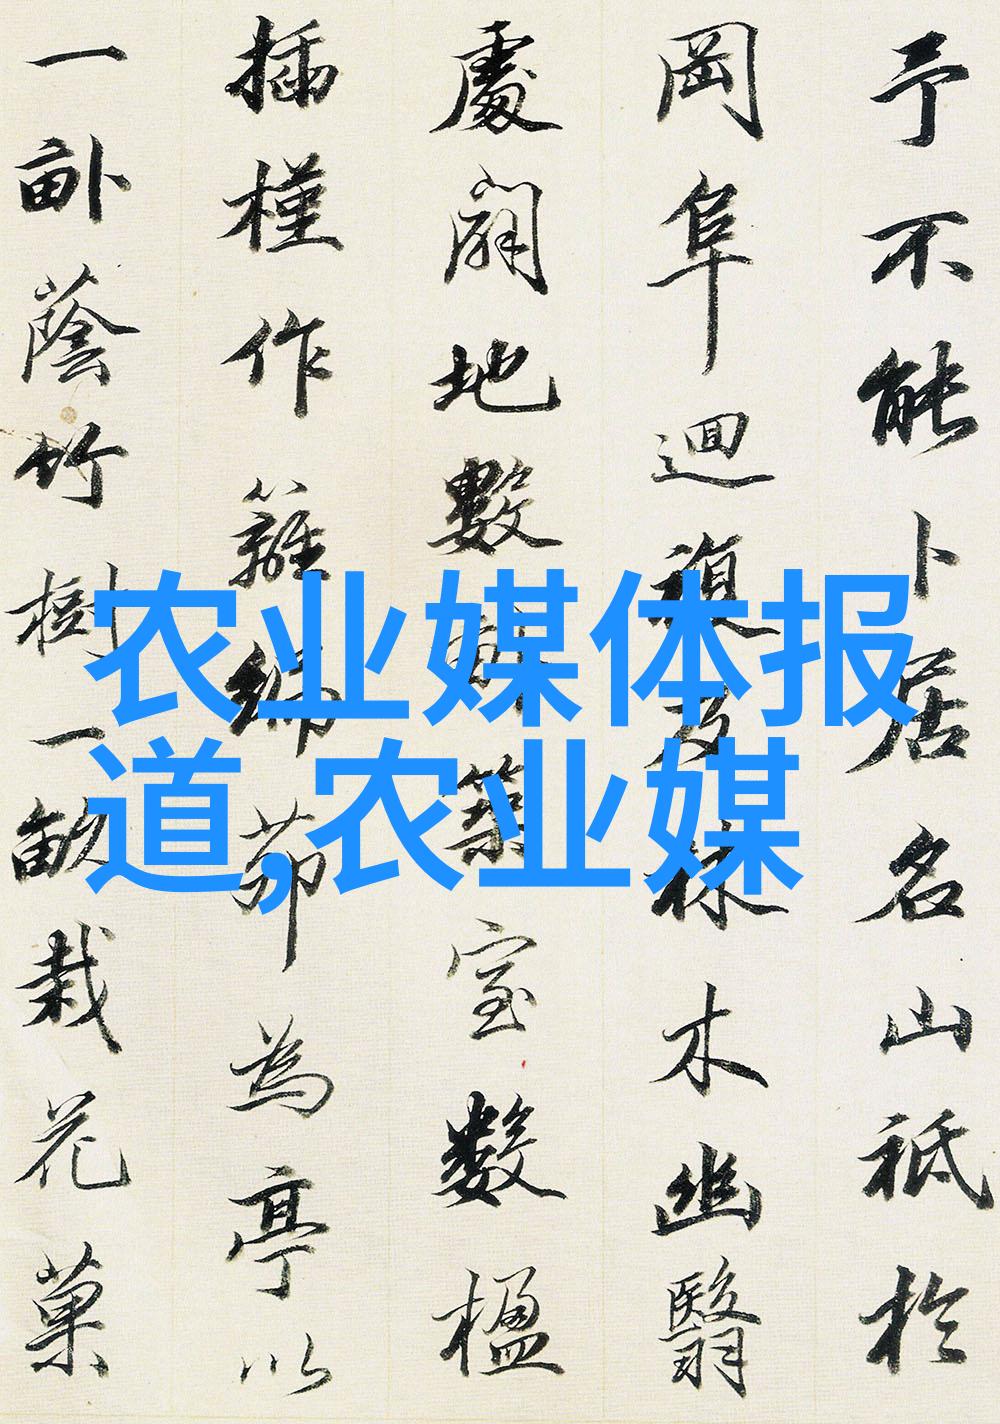 予不能卜居名山祗於
岡阜迴複及林木幽翳
處闢地數畝築室數楹
插槿作籬編茆為亭以
一畝蔭竹樹一畝栽花菓
农业媒体报
道,农业媒